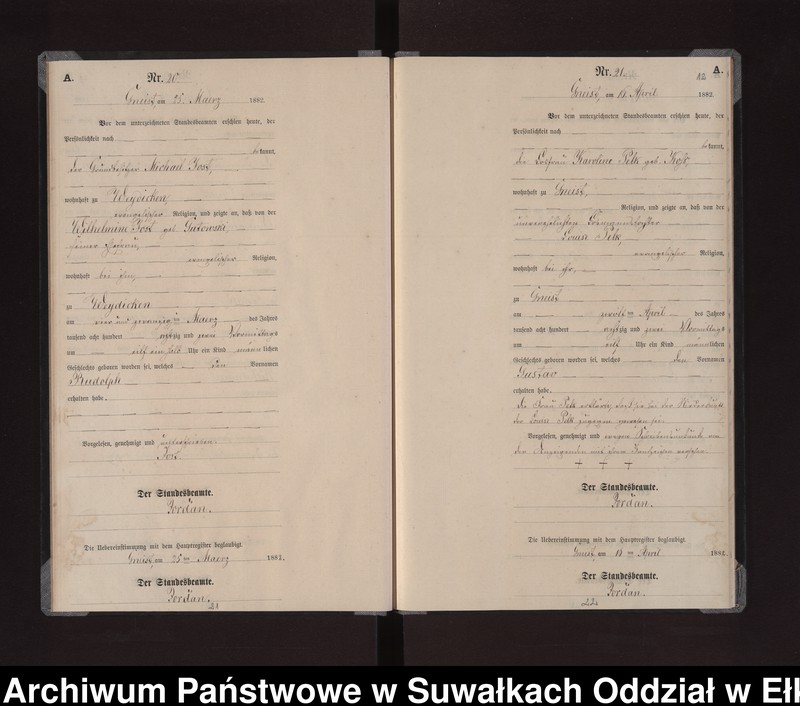 A.
Nr. 20
Gneist, am 25. Maerz 1882.
Vor dem unterzeichneten Standesbeamten erschien heute, der
Persönlichkeit nach
bekannt,
der Grundbesitzer Michael Jost,
wohnhaft zu Weydicken,
evangelischer Religion, und zeigte an, daß von der
Wilhelmine Jost geb. Gutowski,
seiner Ehefrau,
evangelischer Religion,
wohnhaft bei ihm,
zu Weydicken
am vier und zwanzig ten Maerz des Jahres
tausend acht hundert achtzig und zwei Vormittags
um Uhr ein Kind männlichen
Geschlechts geboren worden sei, welches den Vornamen
Rudolph
erhalten habe.
Vorgelesen, genehmigt und unterschrieben.
Jost.
Der Standesbeamte.
Jordan.
Die Uebereinstimmung mit dem Hauptregister beglaubigt.
Gneist, am 25 ten Maerz 1882.
Der Standesbeamte.
Jordan.
21
A.
Nr. 21.
12
Gneist, am April 1882.
Vor dem unterzeichneten Standesbeamten erschien heute, der
Persönlichkeit nach
bekannt,
die Losfrau Karoline Pelk geb. Koss,
wohnhaft zu Gneist,
Religion, und zeigte an, daß von der
unverehelichten
Louise Pelk,
evangelischer Religion,
wohnhaft bei ihr,
zu Gneist
am April des Jahres
tausend acht hundert achtzig und zwei Vormittags
um elf Uhr ein Kind männlichen
Geschlechts geboren worden sei, welches den Vornamen
Gustav
erhalten habe.
die Frau Pelk erklärte, daß sie bei der Niederkunft
der Louise Pelk zugegen gewesen sei.
Vorgelesen, genehmigt und wegen Schreibensunkunde von
der Anzeigenden mit ihrem Handzeichen versehen.
+ + +
Der Standesbeamte.
Jordan.
Die Uebereinstimmung mit dem Hauptregister beglaubigt.
Gneist, am ten April 188
Der Standesbeamte.
Jordan.
22
Archiwum Państwowe w Suwałkach Oddział w Ełk